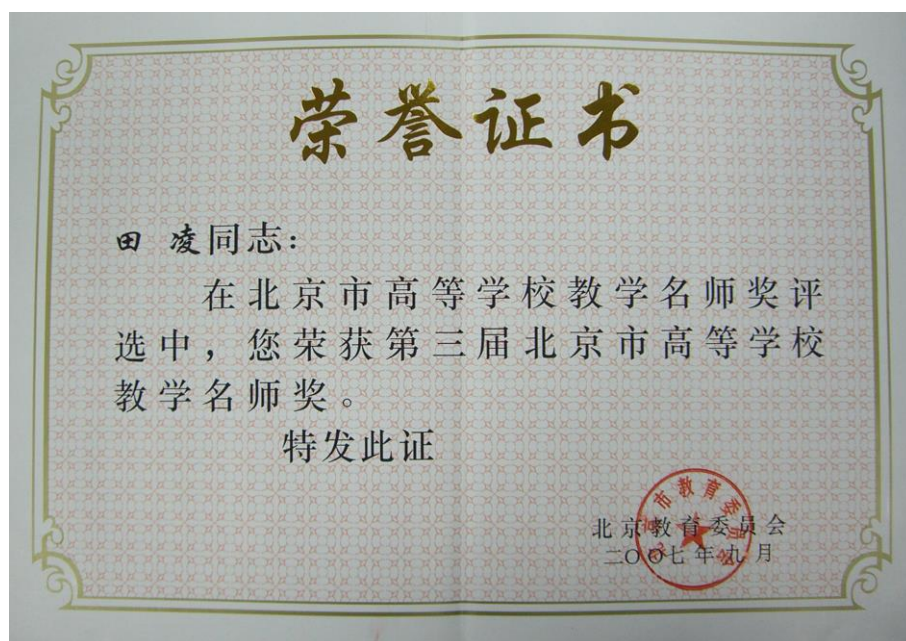 荣誉证书
田 凌同志:
在北京市高等学校教学名师奖评
选中，您荣获第三届北京市高等学校
教学名师奖。
特发此证
北京教育委员会
二〇〇七年九月